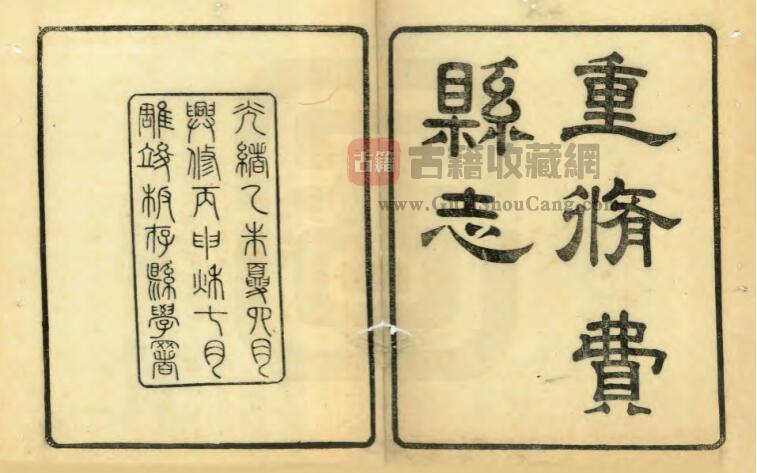 重脩費
縣志
光緒乙未夏六月
興修丙申秋七月
雕竣板存縣學署
古籍
古籍收藏網
www.GujiShouCang.com